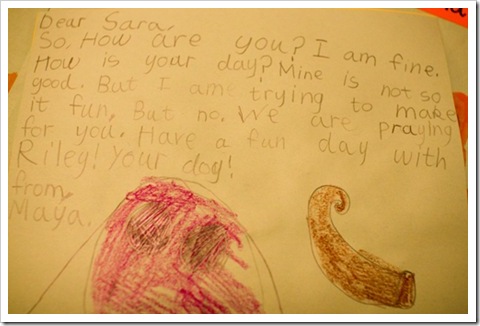 Dear Sara,
So, How are you? I am fine.
How is your day? Mine is not so
good. But I am trying to make
it fun, But no. We are praying
for you. Have a fun day with
Riley! Your dog!
from,
Maya.